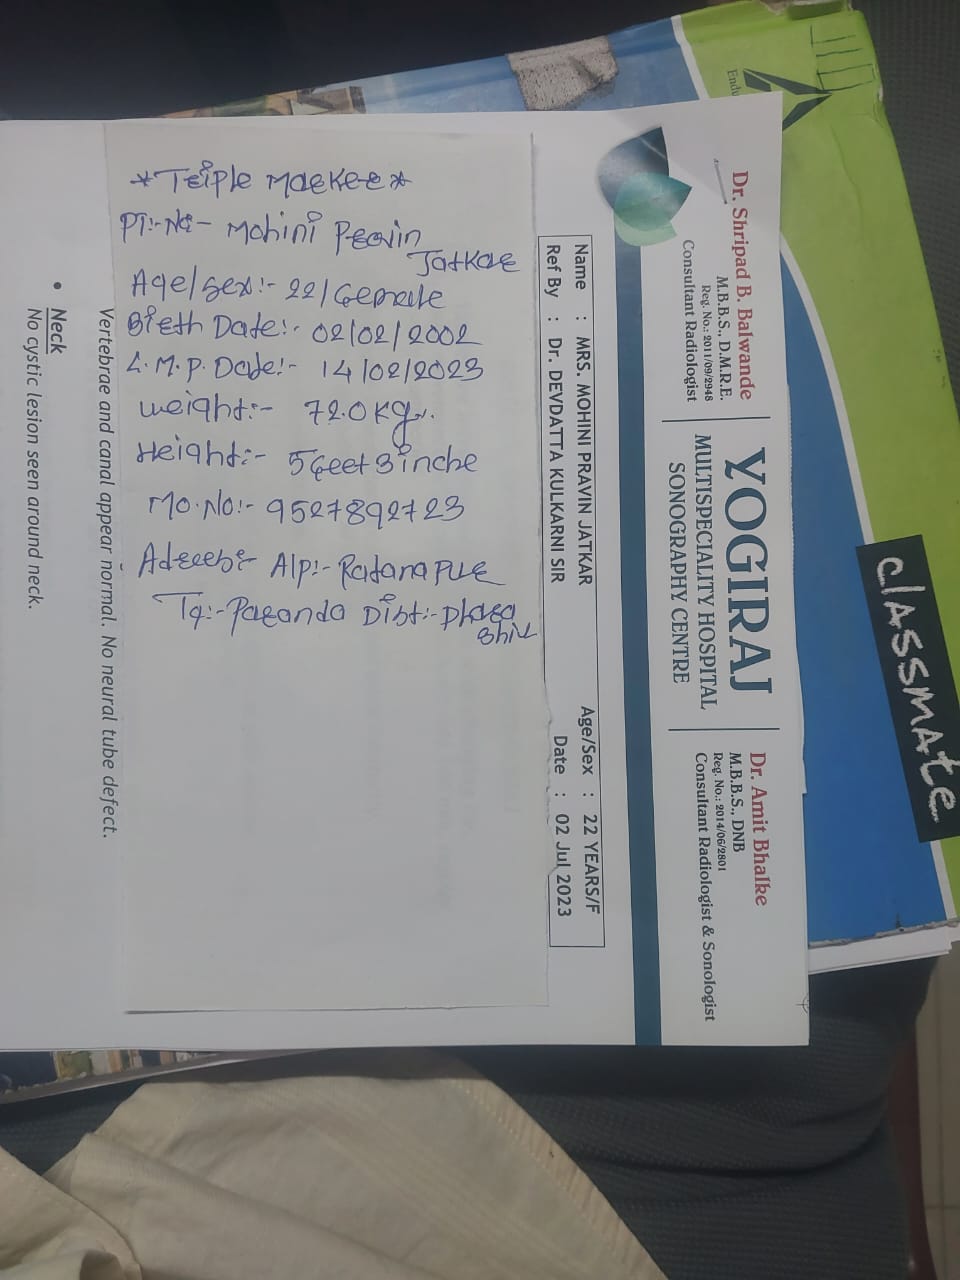 *Triple Marker*
Pt:-Na- Mohini Pravin
Jatkar
Age/Sex:- 22/Female
Birth Date:- 02/02/2002
L.M.P. Date:- 14/02/2023
Weight:- 72.0 Kg.
Height:- 5 feet 3 inche
Mo.No:- 9527892723
A/p:- Ratanapur
Tq:-Paranda Dist:-Dhara
shiv
Dr. Shripad B. Balwande
M.B.B.S., D.M.R.E.
Reg. No.: 2011/09/2948
Consultant Radiologist
YOGIRAJ
MULTISPECIALITY HOSPITAL
SONOGRAPHY CENTRE
Dr. Amit Bhalke
M.B.B.S., DNB
Reg. No.: 2014/06/2801
Consultant Radiologist & Sonologist
Name : MRS. MOHINI PRAVIN JATKAR Age/Sex : 22 YEARS/F
Ref By : Dr. DEVDATTA KULKARNI SIR Date : 02 Jul 2023
Vertebrae and canal appear normal. No neural tube defect.
• Neck
No cystic lesion seen around neck.
classmate